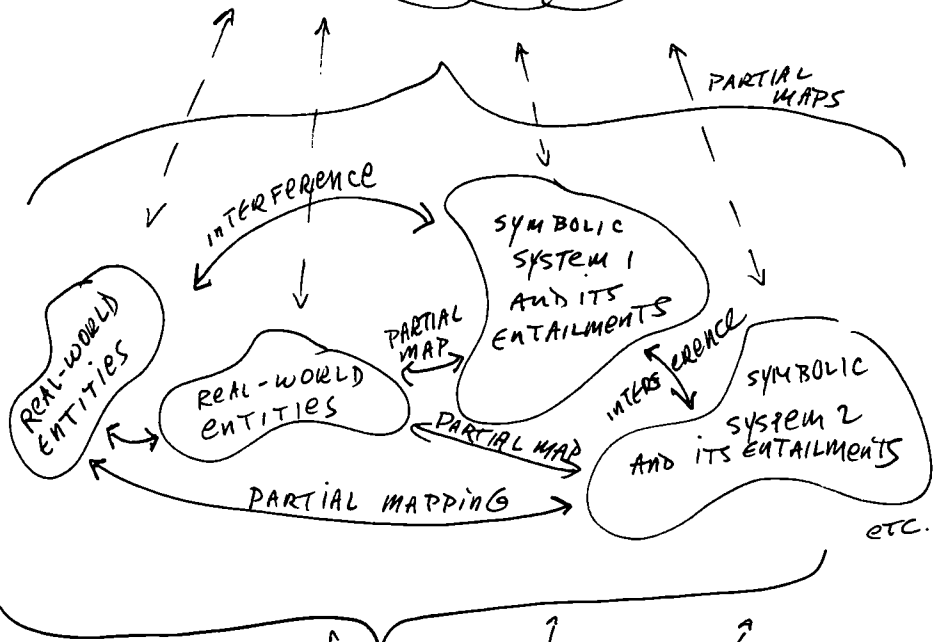 PARTIAL
MAPS
INTERFERENCE
SYMBOLIC
SYSTEM 1
AND ITS
ENTAILMENTS
REAL-WORLD
ENTITIES
REAL-WORLD
ENTITIES
PARTIAL
MAP
INTERFERENCE
SYMBOLIC
SYSTEM 2
AND ITS ENTAILMENTS
PARTIAL MAP
PARTIAL MAPPING
ETC.